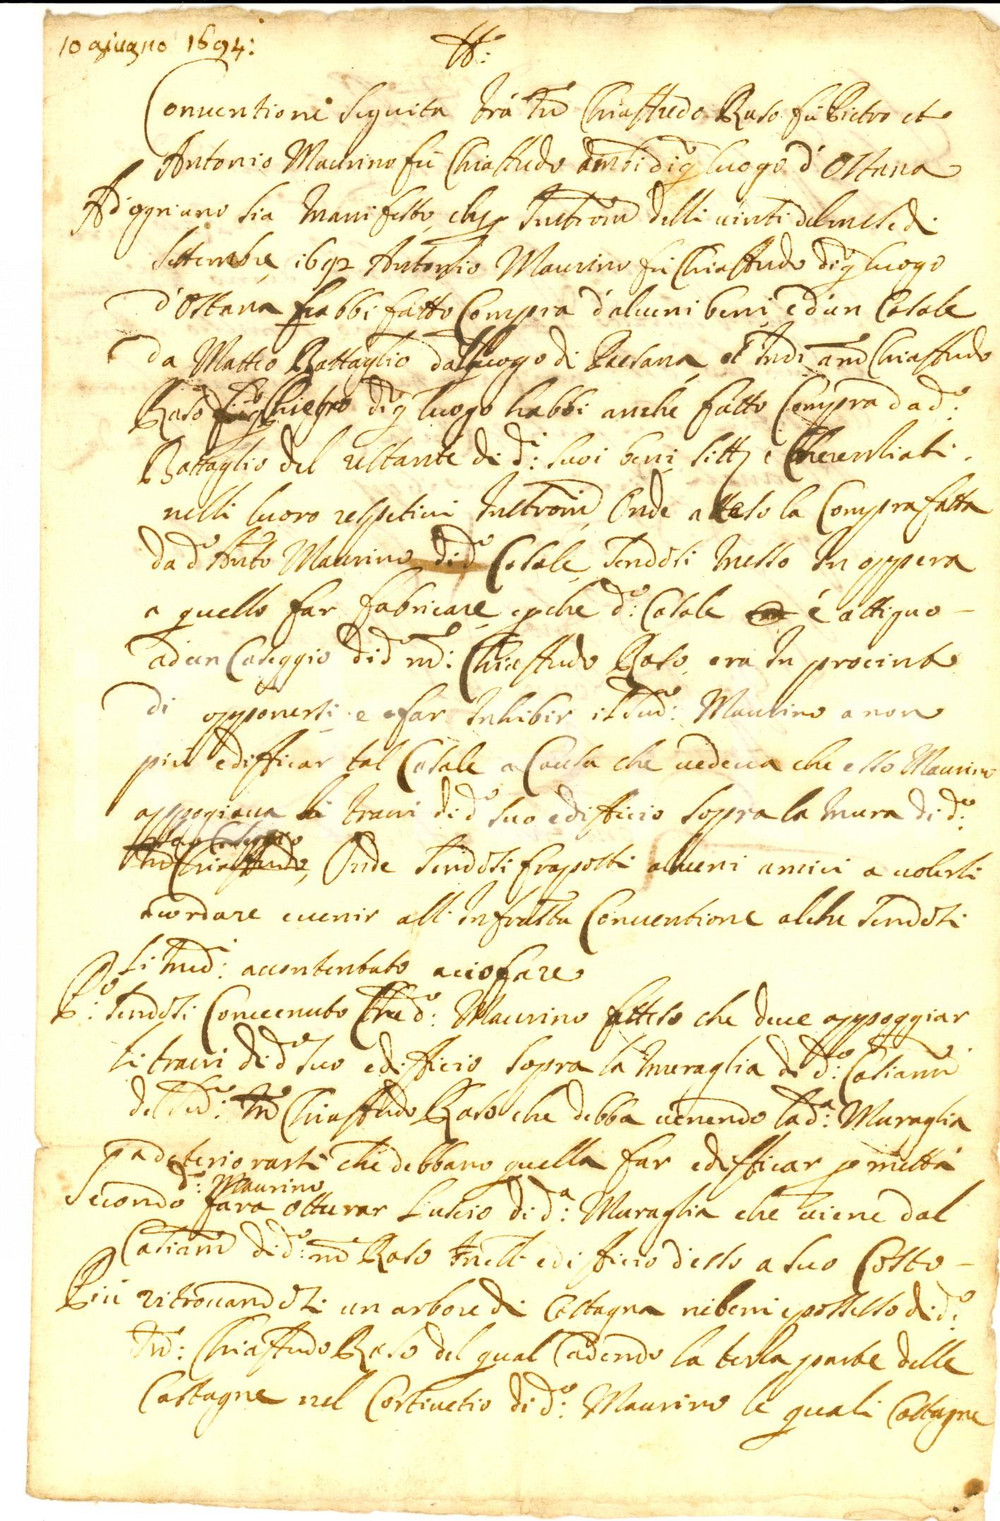 10 giugno 1694:
Conventione seguita trà Chiaffredo Raso fù Pietro et
Antonio Maurino fù Chiaffredo ambi di luogo d'Ostana
Ad ogniuno sia manifesto che Instrom delli vinti del mese di
Settembre 1692 Antonio Maurino fù Chiaffredo di luogo
d'Ostana habbi fatto Compra d'alcuni beni e d'un Casale
da Matteo Battaglio dal luogo di Paesana et Indi Chiaffredo
Raso di luogo habbi anche fatto Compra da d:
Battaglio del restante de d: suoi beni sitti e Cherentiati
nelli luoro respetivi Instrom, Onde atteso la Compra fatta
da d Anto Maurino di d Casale, sendosi messo in oppera
a quello far fabricare, e perche d: Casale é attiguo
ad un Caseggio di d m: Chiaffredo Raso, era In procinto
di opponersi e far inhibir il sud: Maurino a non
piu edifficar tal Casale a Causa che vedeva che esso Maurino
appogiava li travi di d suo edifficio sopra la mura di d:
Onde sendosi fraposti alcuni amici a volerli
acordare e venir all infratta Conventione alche sendosi
li sud: accontentato accio fare
P: sendosi Convenuto d: Maurino atteso che deve appoggiar
li travi di d suo edifficio sopra la muraglia di d: Casiam
del sud: Chiaffredo Raso che debba venendo la d: Muraglia
a deteriorarsi che debbano quella far edifficar p mettà
Secondo d: Maurino fara otturar l'uscio di d: Muraglia che viene dal
Casiam di d: m Raso nell edifficio d'esso a suo Costo
Più ritrovandosi un arbore di Castagna ne beni e possesso di d:
Chiaffredo Raso del qual Cadendo la terza parte delle
Castagne nel Cortivetio di d: Maurino le quali Castagne